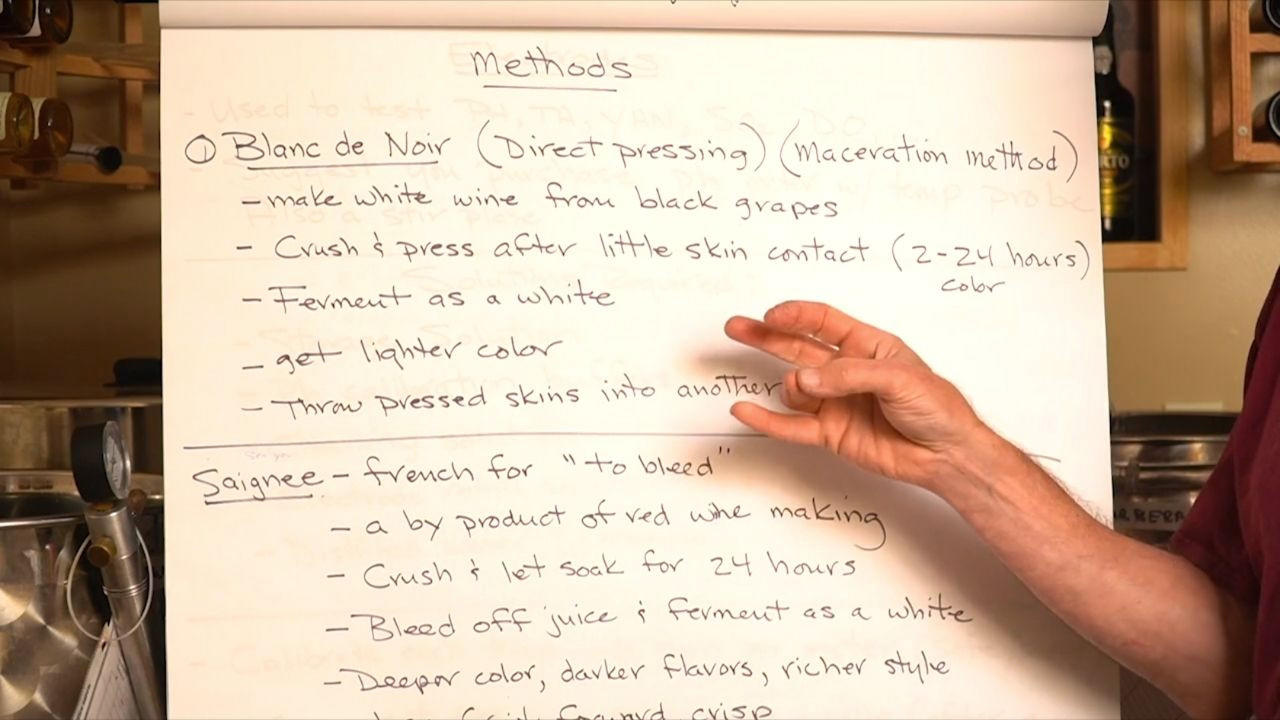 Methods
① Blanc de Noir (Direct pressing) (maceration method)
- make white wine from black grapes
- Crush & press after little skin contact (2-24 hours)
color
- Ferment as a white
- get lighter color
- Throw pressed skins into another
Saignee - french for "to bleed"
- a by product of red wine making
- Crush & let soak for 24 hours
- Bleed off juice & ferment as a white
- Deeper color, darker flavors, richer style
crisp